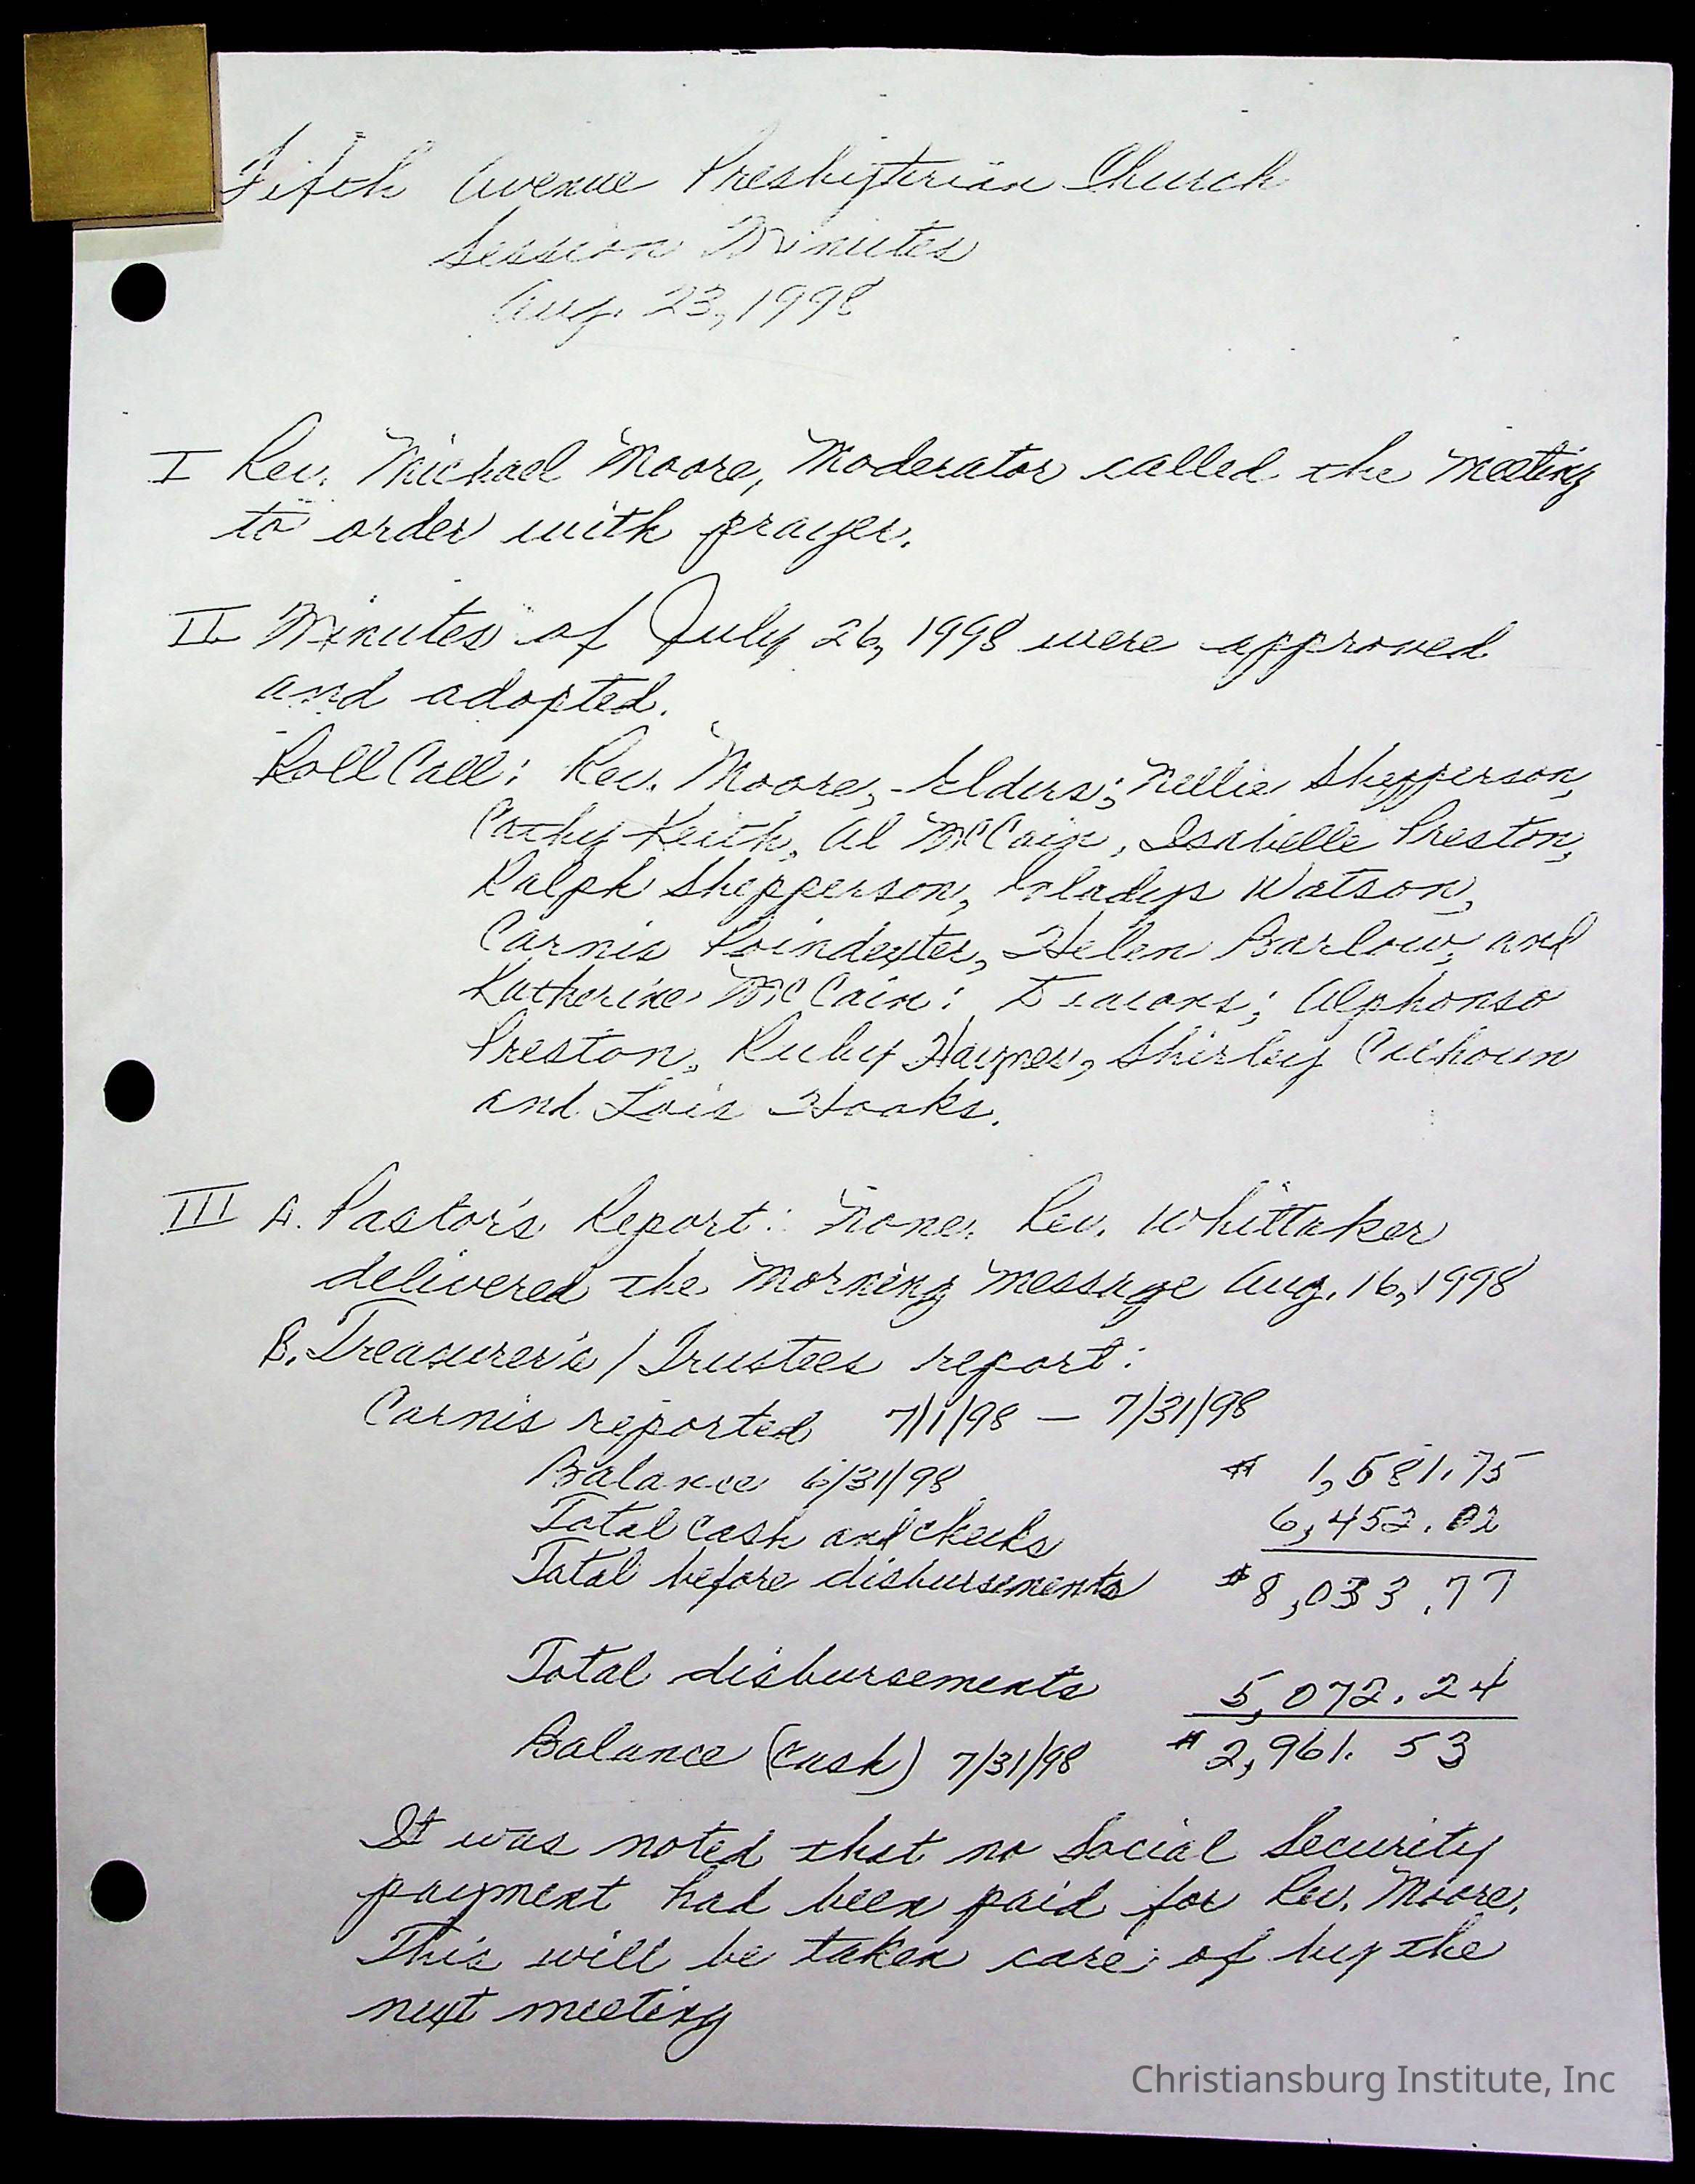 Fifth Avenue Presbyterian Church
Session Minutes
Aug. 23, 1998
I Rev. Michael Moore, Moderator called the meeting
to order with prayer.
II Minutes of July 26, 1998 were approved
and adopted.
Roll Call: Rev. Moore, Elders; Nellie Shepperson,
Cathy Keith, Al McCain, Isabelle Preston,
Ralph Shepperson, Gladys Watson,
Carnis Poindexter, Helen Barlow, and
Katherine McCain: Deacons; Alphonso
Preston, Ruby Haynes, Shirley Calhoun
and Lois Hooks.
III A. Pastor's Report: None. Rev. Whittaker
delivered the morning message Aug. 16, 1998
B. Treasurer's / Trustees report:
Carnis reported 7/1/98 — 7/31/98
Balance 6/31/98 $ 1,581.75
Total cash and checks 6,452.02
Total before disbursements $8,033.77
Total disbursements 5,072.24
Balance (cash) 7/31/98 $2,961.53
It was noted that no Social Security
payment had been paid for Rev. Moore.
This will be taken care of by the
next meeting
Christiansburg Institute, Inc